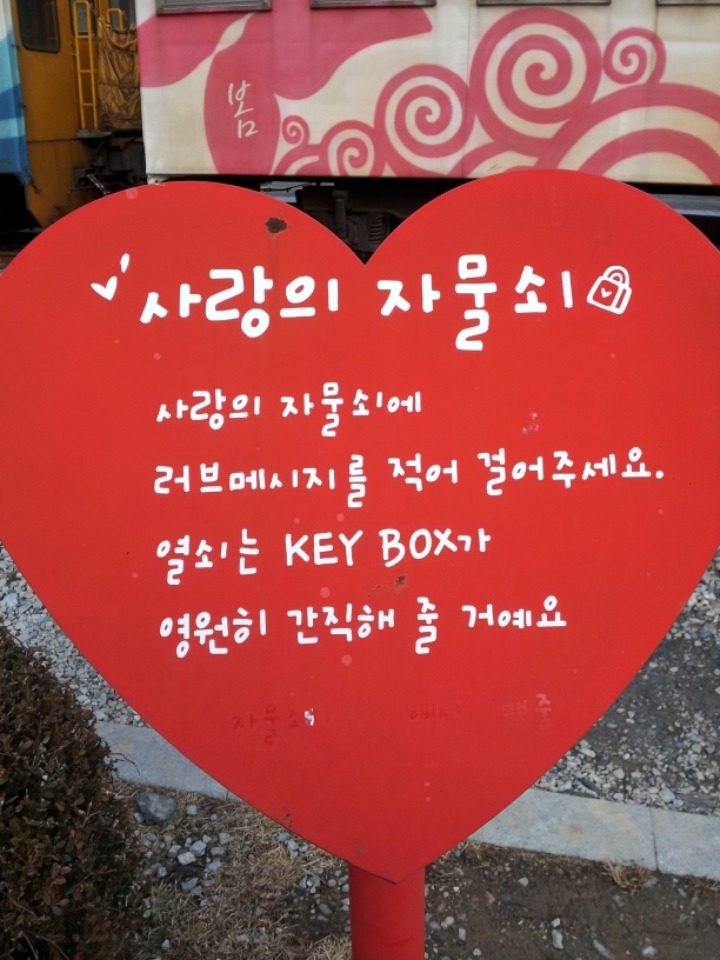 봄
사랑의 자물쇠
사랑의 자물쇠에
러브메시지를 적어 걸어주세요.
열쇠는 KEY BOX가
영원히 간직해 줄 거예요
자물쇠